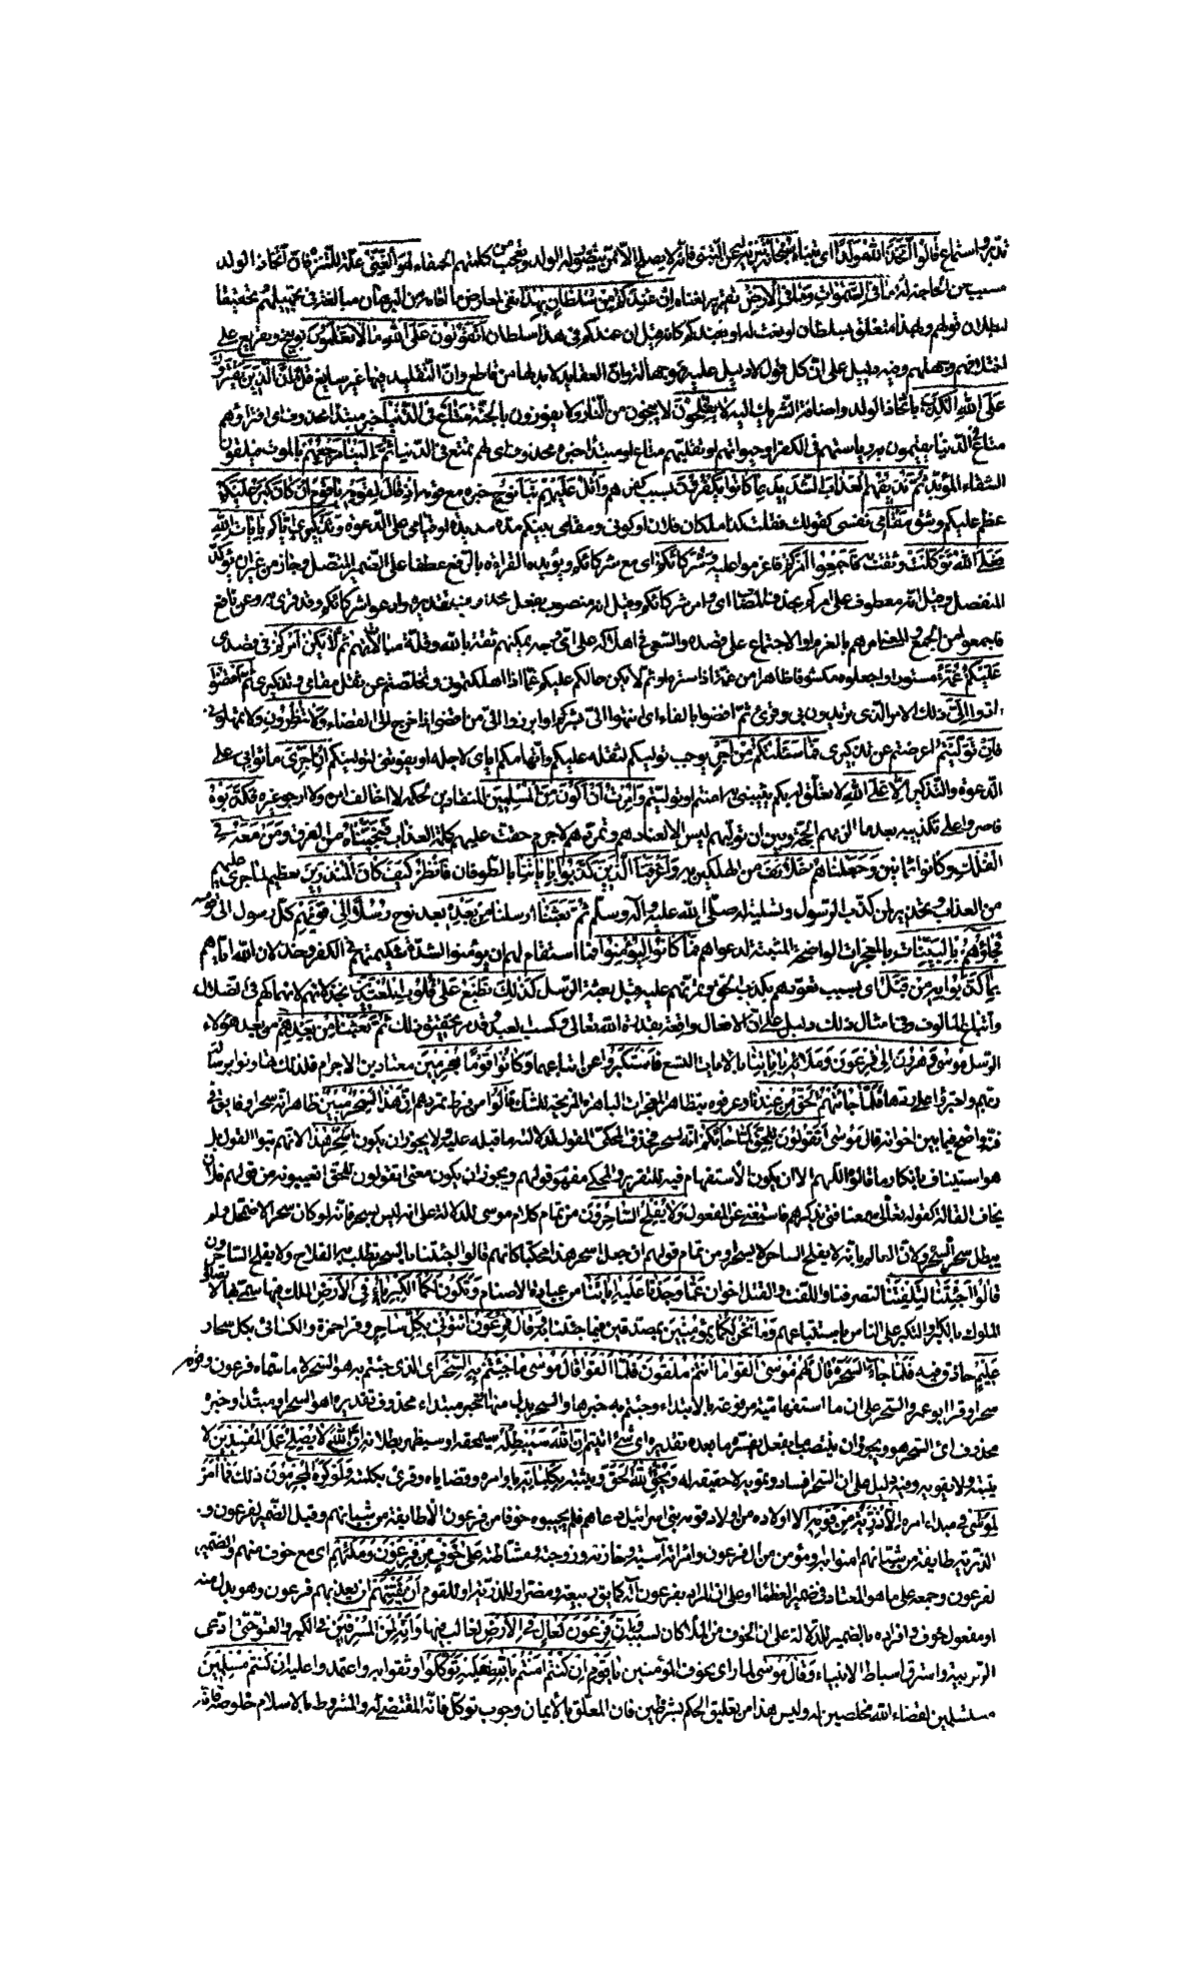 تدبر واستماع قالوا اتخذ الله ولدا اى تبناه سبحانه تنزيه له عن التبنى فانه لا يصح الا ممن يتصور له الولد وتعجب من كلمتهم الحمقاء هو الغنى علة للتنزه فان اتخاذ الولد
مسبب عن الحاجة له ما فى السموات وما فى الارض تقرير لغناه ان عندكم من سلطان بهذا نفى لمعارض ما اقامه من البرهان مبالغة فى تجهيلهم وتحقيقا
لبطلان قولهم وبهذا متعلق بسلطان او نعت له او بعندكم كانه قيل ان عندكم فى هذا سلطان اتقولون على الله ما لا تعلمون توبيخ وتقريع على
اختلاقهم وجهلهم وفيه دليل على ان كل قول لا دليل عليه فهو جهالة وان العقايد لا بد لها من قاطع وان التقليد فيها غير سايغ قل ان الذين يفترون
على الله الكذب باتخاذ الولد واضافة الشريك اليه لا يفلحون لا ينجون من النار ولا يفوزون بالجنة متاع فى الدنيا خبر مبتدا محذوف اى افتراؤهم
متاع فى الدنيا يقيمون به رياستهم فى الكفر او حيوتهم او تقلبهم متاع او مبتدا خبره محذوف اى لهم تمتع فى الدنيا ثم الينا مرجعهم بالموت فيلقون
الشقاء المؤبد ثم نذيقهم العذاب الشديد بما كانوا يكفرون بسبب كفرهم واتل عليهم نبا نوح خبره مع قومه اذ قال لقومه يا قوم ان كان كبر عليكم
عظم عليكم وشق مقامى نفسى كقولك فعلت كذا لمكان فلان او كونى ومقامى بينكم مدة مديدة او قيامى على الدعوة وتذكيرى اياكم بايات الله
فعلى الله توكلت وثقت به فاجمعوا امركم فاعزموا عليه وشركائكم اى مع شركائكم ويؤيده القراءة بالرفع عطفا على الضمير المتصل وجاز من غير ان يؤكد
للفصل وقيل انه معطوف على امركم بحذف المضاف اى وامر شركائكم وقيل انه منصوب بفعل محذوف تقديره وادعوا شركائكم وقد قرى به وعن نافع
فاجمعوا من الجمع والمعنى امرهم بالعزم او الاجتماع على قصده والسعى فى اهلاكه على اى وجه يمكنهم ثقة بالله وقلة مبالاة بهم ثم لا يكن امركم فى قصدى
عليكم غمة مستورا واجعلوه مكشوفا ظاهرا من غمه اذا ستره او ثم لا يكن حالكم عليكم غما اذا اهلكتمونى وتخلصتم عن ثقل مقامى وتذكيرى ثم اقضوا
ادوا الى ذلك الامر الذى تريدون بى وقرئ ثم افضوا بالفاء اى انتهوا الى بشركم او ابرزوا الى من افضى اذا خرج الى الفضاء ولا تنظرون ولا تمهلونى
فان توليتم اعرضتم عن تذكيرى فما سالتكم من اجر يوجب توليكم لثقله عليكم واتهامكم اياى لاجله او يفوتنى لتوليكم ان اجرى ما ثوابى على
الدعوة والتذكير الا على الله لا تعلق له بكم يثيبنى به امنتم او توليتم وامرت ان اكون من المسلمين المنقادين لحكمه لا اخالف امره ولا ارجو غيره فكذبوه
فاصروا على تكذيبه بعد ما الزمهم الحجة وبين ان توليهم ليس الا لعنادهم وتمردهم لا جرم حقت عليهم كلمة العذاب فنجيناه من الغرق ومن معه فى
الفلك وكانوا ثمانين وجعلناهم خلائف من الهالكين به واغرقنا الذين كذبوا باياتنا بالطوفان فانظر كيف كان عاقبة المنذرين تعظيم لما جرى عليهم
من العذاب وتحذير لمن كذب الرسول وتسلية له صلى الله عليه وآله وسلم ثم بعثنا ارسلنا من بعده بعد نوح رسلا الى قومهم كل رسول الى قومه
فجاؤهم بالبينات بالمعجزات الواضحة المثبتة لدعواهم فما كانوا ليؤمنوا فما استقام لهم ان يؤمنوا لشدة شكيمتهم فى الكفر وخذلان الله اياهم
بما كذبوا به من قبل اى بسبب تعودهم بكذب الحق وتمرنهم عليه قبل بعثة الرسل كذلك نطبع على قلوب المعتدين بخذلانهم لانهماكهم فى الضلال
واتباع المالوف وفى امثال ذلك دليل على ان الافعال واقعة بقدرة الله تعالى وكسب العبد وقد مر تحقيق ذلك ثم بعثنا من بعدهم من بعد هؤلاء
الرسل موسى وهرون الى فرعون وملائه باياتنا بالايات التسع فاستكبروا عن اتباعهما وكانوا قوما مجرمين معتادين الاجرام فلذلك تهاونوا برسالة
ربهم واجترؤا على ردها فلما جائهم الحق من عندنا وعرفوه بتظاهر المعجزات الباهرة المزيحة للشك قالوا من فرط تمردهم ان هذا لسحر مبين ظاهر انه سحر او فايق فى
فنه واضح فيما بين اخوانه قال موسى اتقولون للحق لما جائكم انه لسحر فحذف المحكى المقول لدلالة ما قبله عليه ولا يجوز ان يكون اسحر هذا لانهم بتوا القول بل
هو استيناف بانكار ما قالوه اللهم الا ان يكون الاستفهام فيه للتقرير والمحكى مفهوم قولهم ويجوز ان يكون معنى اتقولون للحق اتعيبونه من قولهم فلان
يخاف القالة كقوله تعالى سمعنا فتى يذكرهم فاستغنى عن المفعول ولا يفلح الساحرون من تمام كلام موسى للدلالة على انه ليس بسحر فانه لو كان سحرا لاضمحل ولم
يبطل سحر السحرة ولان العالم بانه لا يفلح الساحر لا يسحر او من تمام قولهم ان جعل اسحر هذا محكيا كانهم قالوا اجئتنا بالسحر تطلب به الفلاح ولا يفلح الساحرون
قالوا اجئتنا لتلفتنا لتصرفنا واللفت والفتل اخوان عما وجدنا عليه اباءنا من عبادة الاصنام وتكون لكما الكبرياء فى الارض الملك فيها سمى بها لاتصاف
الملوك بالكبر والتكبر على الناس باستتباعهم وما نحن لكما بمؤمنين بمصدقين فيما جئتما به وقال فرعون ائتونى بكل ساحر وقرا حمزة والكسائى بكل سحار
عليم حاذق فيه فلما جاء السحرة قال لهم موسى القوا ما انتم ملقون فلما القوا قال موسى ما جئتم به السحر اى الذى جئتم به هو السحر لا ما سماه فرعون وقومه
سحرا وقرا ابو عمرو السحر على ان ما استفهامية مرفوعة بالابتداء وجئتم به خبرها والسحر بدل منها او خبر مبتداء محذوف تقديره اهو السحر او مبتدا وخبره
محذوف اى السحر هو ويجوز ان ينتصب ما بفعل يفسره ما بعده تقديره اى شئ اتيتم ان الله سيبطله سيمحقه او سيظهر بطلانه ان الله لا يصلح عمل المفسدين لا
يثبته ولا يقويه وفيه دليل على ان السحر افساد وتمويه لا حقيقة له ويحق الله الحق ويثبته بكلماته باوامره وقضاياه وقرئ بكلمته ولو كره المجرمون ذلك فما امن
لموسى فى مبداء امره الا ذرية من قومه الا اولاد من اولاد قومه بنى اسرائيل دعاهم فلم يجيبوه خوفا من فرعون الا طايفة من شبانهم وقيل الضمير لفرعون و
الذرية طايفة من شبانهم امنوا به او مؤمن من ال فرعون وامراته آسية وخازنه وزوجته وماشطته على خوف من فرعون وملئهم اى مع خوف منهم والضمير
لفرعون وجمعه على ما هو المعتاد فى ضمير العظماء او على ان المراد بفرعون آله كما يق ربيعة ومضر او للذرية او للقوم ان يفتنهم ان يعذبهم فرعون وهو بدل منه
او مفعول خوف وافراده بالضمير للدلالة على ان الخوف من الملا كان بسببه وان فرعون لعال فى الارض لغالب فيها وانه لمن المسرفين فى الكبر والعتو حتى ادعى
الربوبية واسترق اسباط الانبياء وقال موسى لما راى بخوف المؤمنين يا قوم ان كنتم امنتم بالله فعليه توكلوا فثقوا به واعتمدوا عليه ان كنتم مسلمين
مستسلمين لقضاء الله مخلصين له وليس هذا من تعليق الحكم بشرطين فان المعلق بالايمان وجوب توكل فانه المقتضى له والمشروط بالاسلام حلوصه فانه